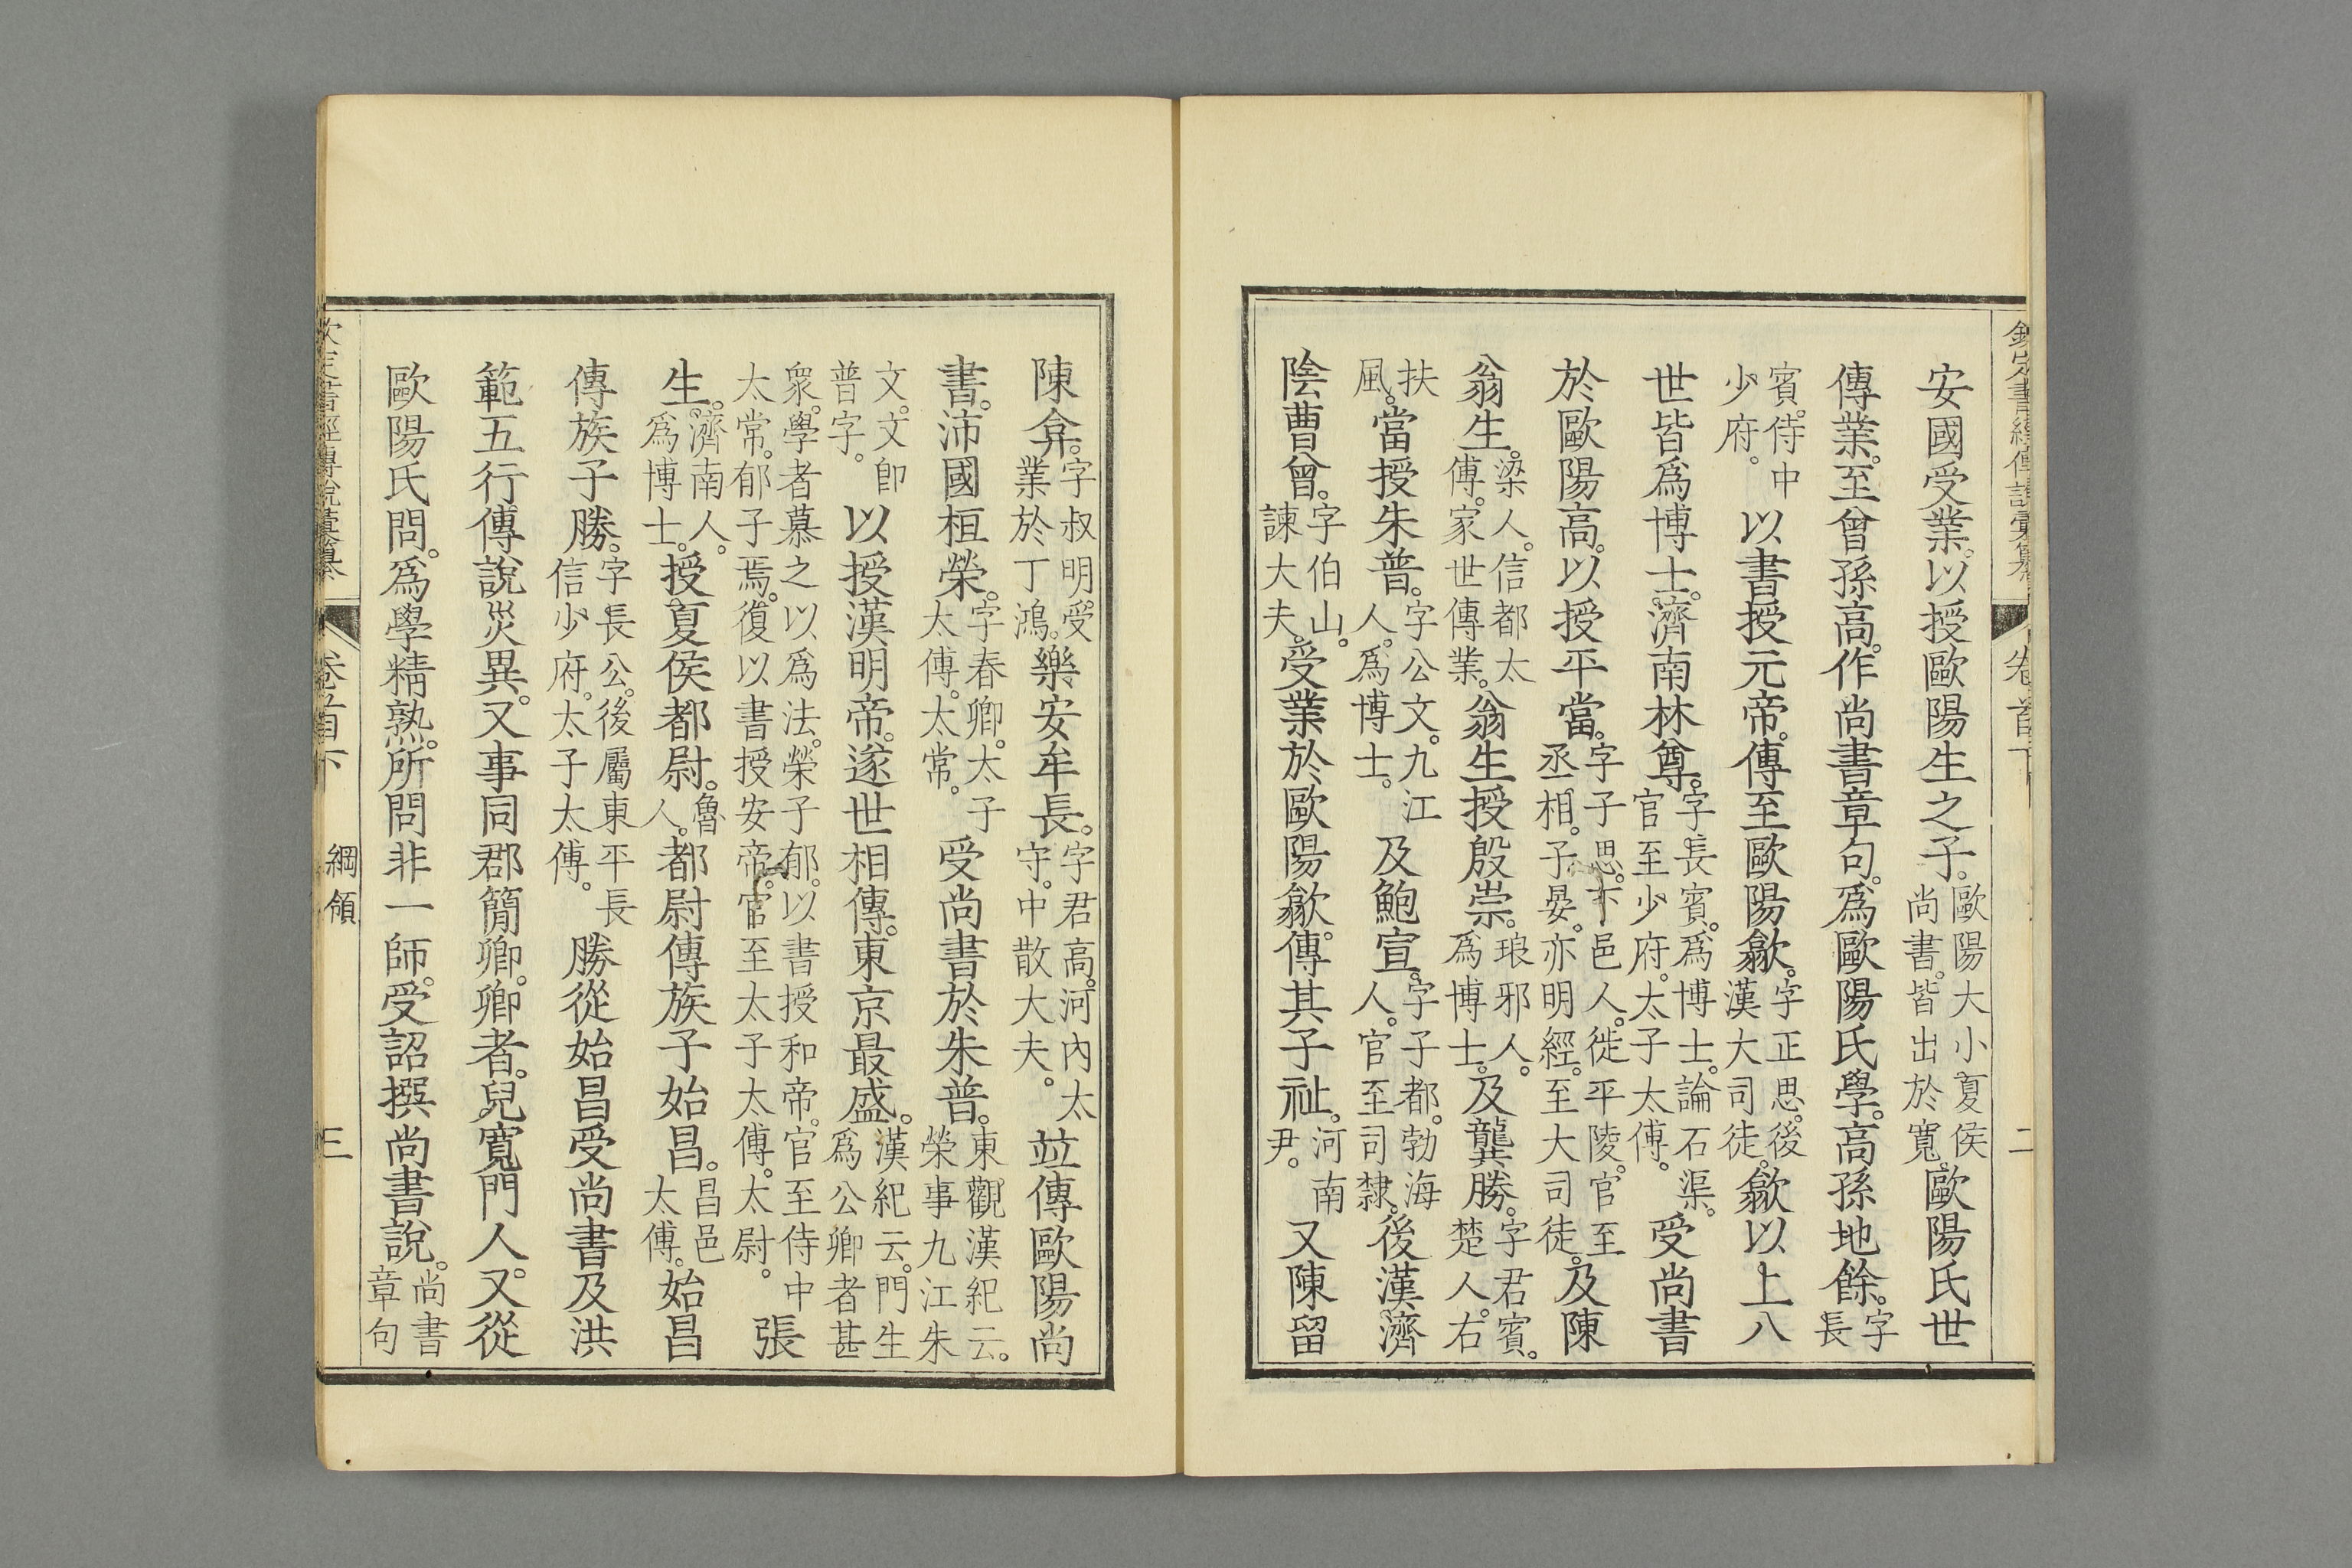 欽定書經傳說彙纂　卷首下　二
安國受業。以授歐陽生之子。歐陽大小夏侯尚書。皆出於寬。歐陽氏世
傳業。至曾孫高。作尚書章句。爲歐陽氏學。高孫地餘。字長
賓。侍中少府。以書授元帝。傳至歐陽歙。字正思。後漢大司徒。歙以上八
世皆爲博士。濟南林尊。字長賓。爲博士。論石渠。官至少府。太子太傅。受尚書
於歐陽高。以授平當。字子思。下邑人。徙平陵。官至丞相。子晏。亦明經。至大司徒。及陳
翁生。梁人。信都太傅。家世傳業。翁生授殷崇。琅邪人。爲博士。及龔勝。字君賓。楚人。右
扶風。當授朱普。字公文。九江人。爲博士。及鮑宣。字子都。勃海人。官至司隸。後漢濟
陰曹曾。字伯山。諫大夫。受業於歐陽歙。傳其子祉。河南尹。又陳留
陳弇。字叔明。受業於丁鴻。樂安牟長。字君高。河內太守。中散大夫。竝傳歐陽尚
書。沛國桓榮。字春卿。太子太傅。太常。受尚書於朱普。東觀漢紀云。榮事九江朱
文。文卽普字。以授漢明帝。遂世相傳。東京最盛。漢紀云。門生爲公卿者甚
衆。學者慕之以爲法。榮子郁。以書授和帝。官至侍中太常。郁子焉。復以書授安帝。官至太子太傅。太尉。張
生。濟南人。爲博士。授夏侯都尉。魯人。都尉傳族子始昌。昌邑太傅。始昌
傳族子勝。字長公。後屬東平長信少府。太子太傅。勝從始昌受尚書及洪
範五行傳說災異。又事同郡簡卿。卿者。兒寬門人。又從
歐陽氏問。爲學精熟。所問非一師。受詔撰尚書說。尚書章句
欽定書經傳說彙纂　卷首下　綱領　三